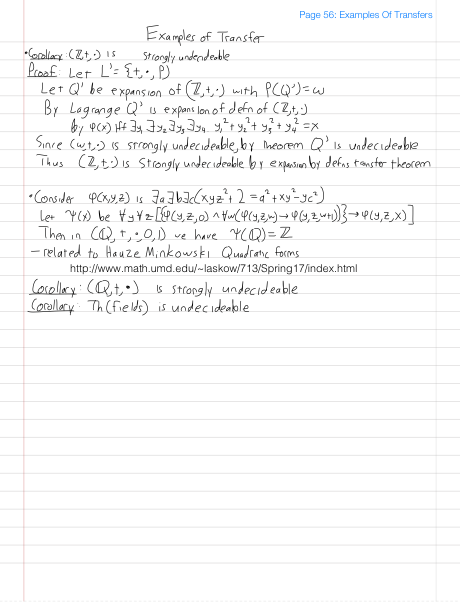 Page 56: Examples Of Transfers
Examples of Transfer
•Corollary: (ℤ,+,·) is strongly undecideable
Proof: Let L'= {+, ·, P}
Let Q' be expansion of (ℤ,+,·) with P(Q')=ω
By Lagrange Q' is expansion of defn of (ℤ,+,·)
by φ(x) iff ∃y₁ ∃y₂ ∃y₃ ∃y₄ y₁²+y₂²+y₃²+y₄²=x
Since (ω,+,·) is strongly undecideable, by theorem Q' is undecideable
Thus (ℤ,+,·) is strongly undecideable by expansion by defns transfer theorem
•Consider φ(x,y,z) is ∃a∃b∃c(xyz²+2=a²+xy²-yc²)
Let Ψ(x) be ∀y∀z[{φ(y,z,0)∧∀w(φ(y,z,w)→φ(y,z,w+1))}→φ(y,z,x)]
Then in (ℚ,+,·,0,1) we have Ψ(ℚ)=ℤ
—related to Hauze Minkowski Quadratic forms
http://www.math.umd.edu/~laskow/713/Spring17/index.html
Corollary: (ℚ,+,•) is strongly undecideable
Corollary: Th(fields) is undecideable